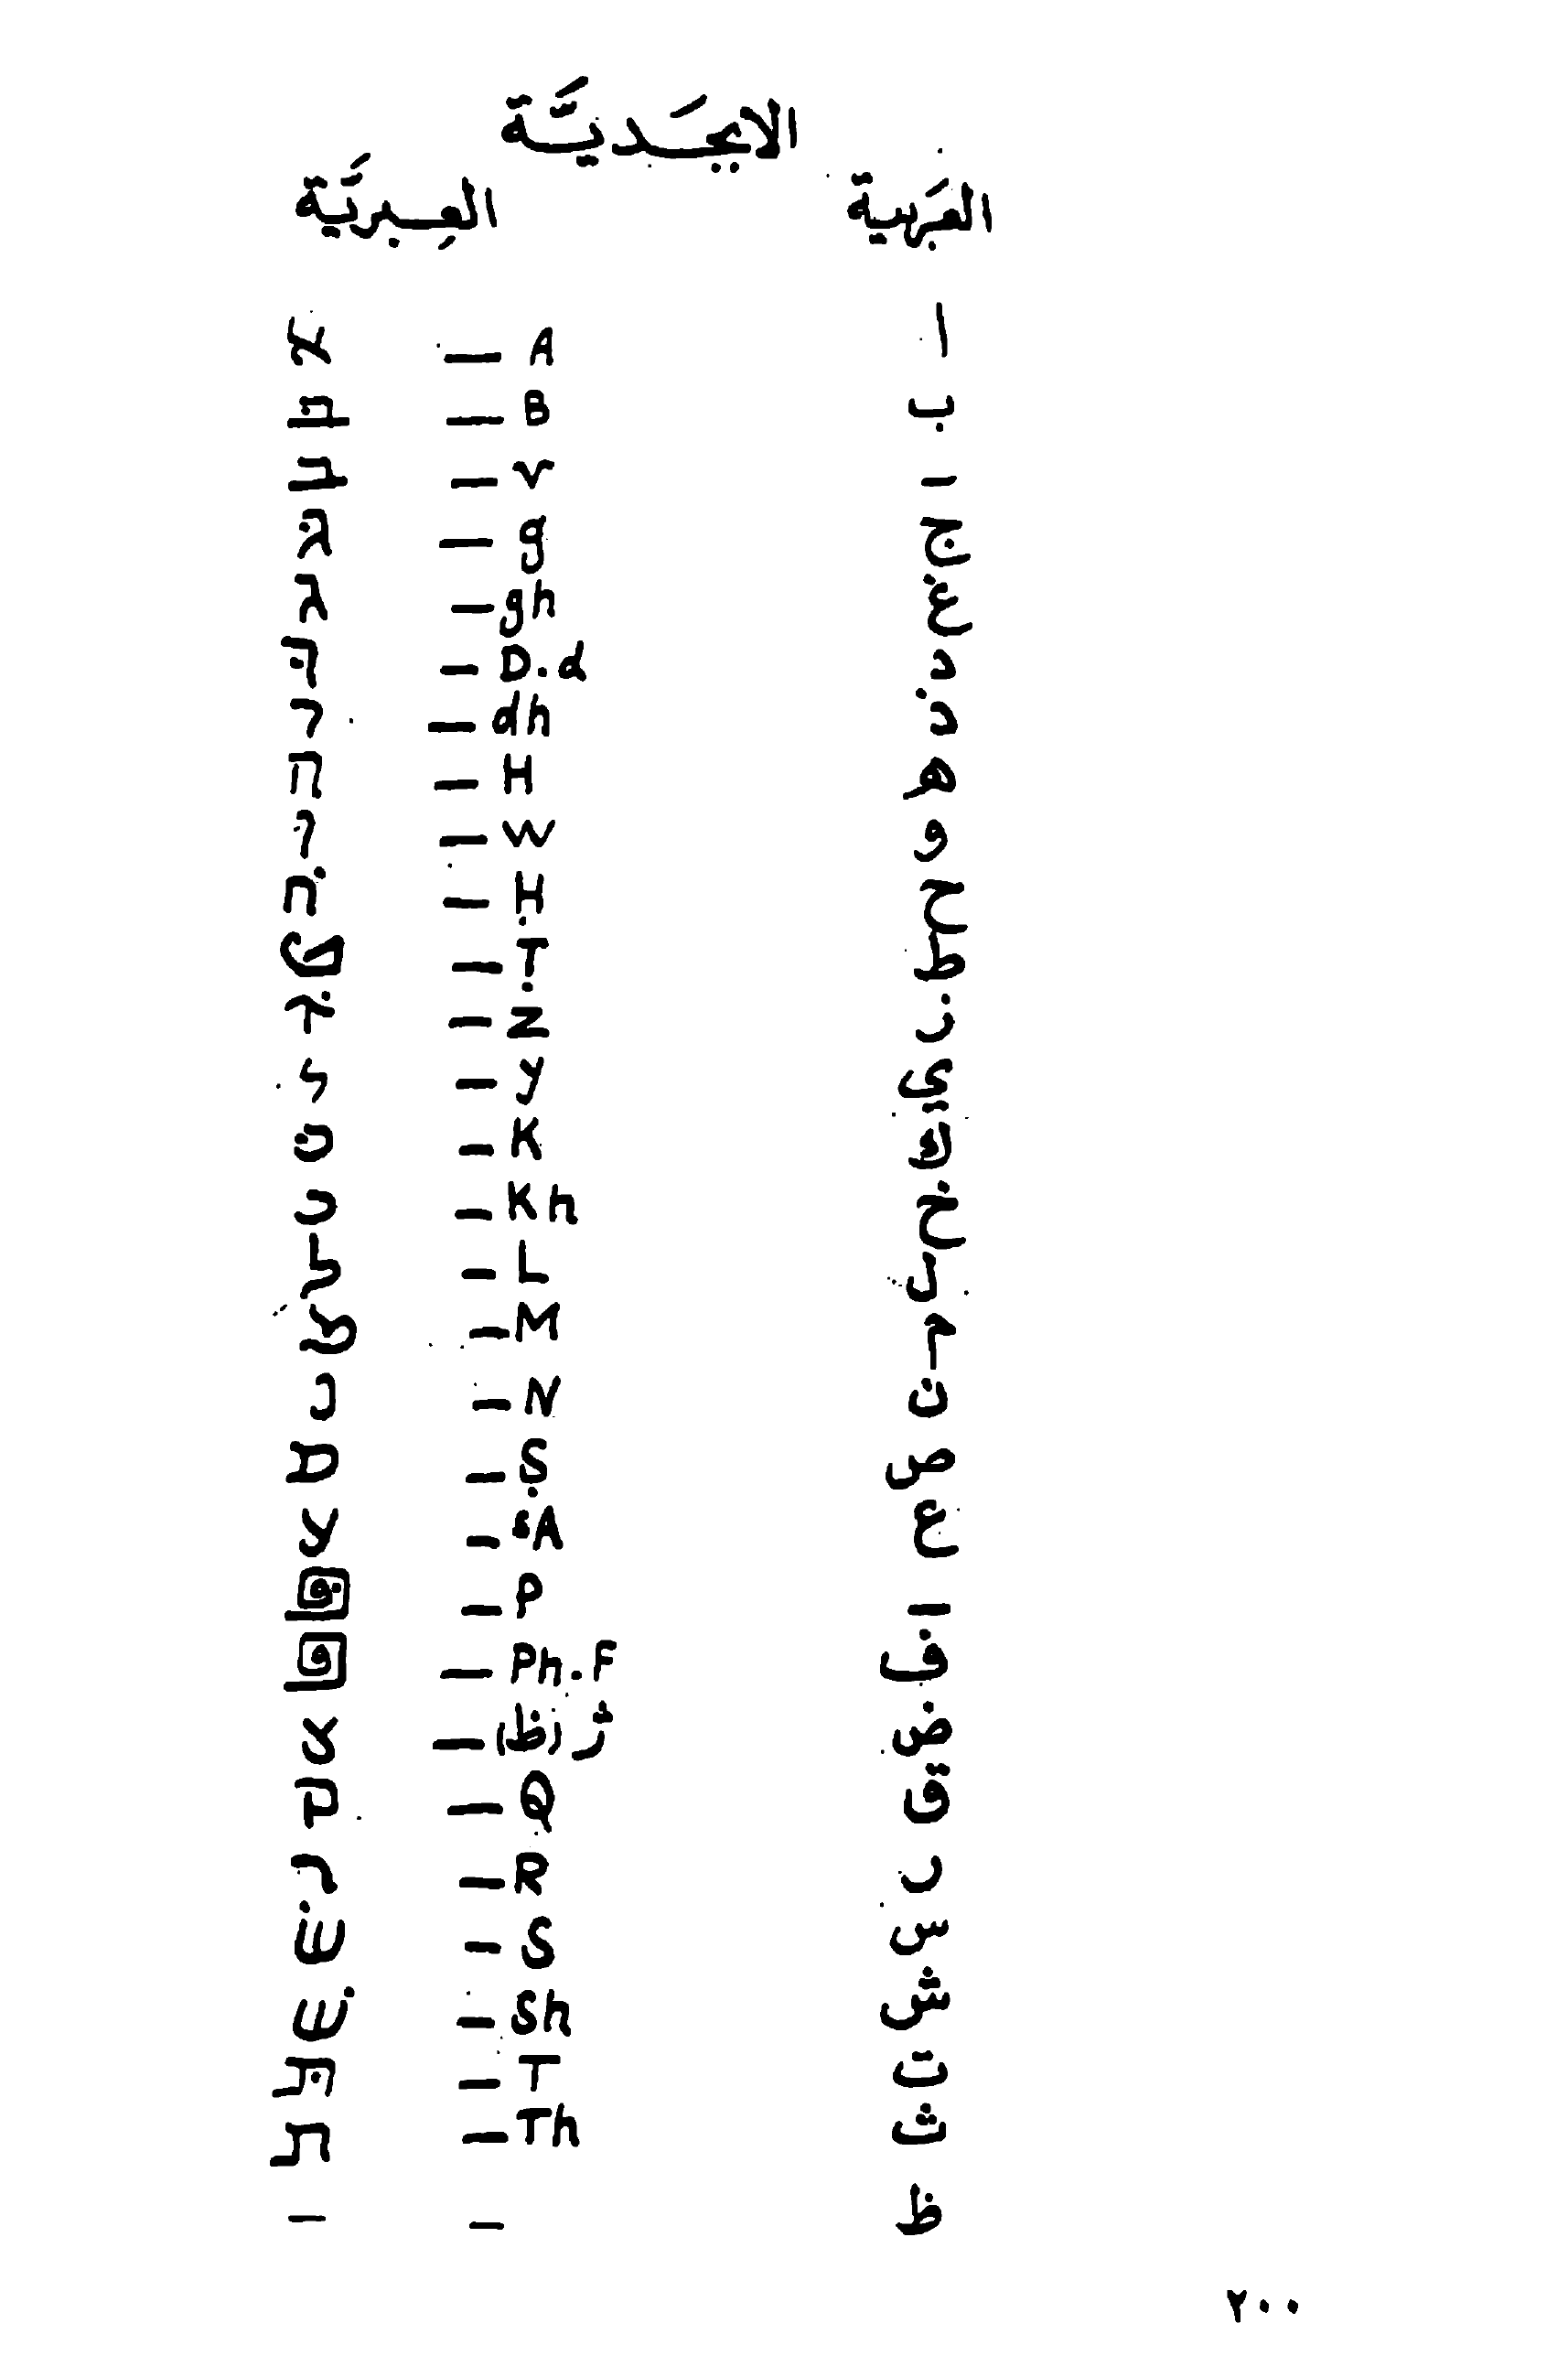 الابجَديَّة
العَربية العِبريَّة
ا A — א
ب B — בּ
– v — ב
ج g — גּ
غ gh — ג
د D.d — דּ
ذ dh — ד
ه H — ה
و W — ו
ح Ḥ — ח
ط Ṭ — ט
ز Z — ז
ي y — י
ك K — כּ
خ Kh — כ
ل L — ל
م M — מ
ن N — נ
ص Ṣ — ס
ع ʿA — ע
– P — פּ
ف Ph.F — פ
ض ژ (ظ) — צ
ق Q — ק
ر R — ר
س S — שׂ
ش Sh — שׁ
ت T — תּ
ث Th — ת
ظ – –
٢٠٠